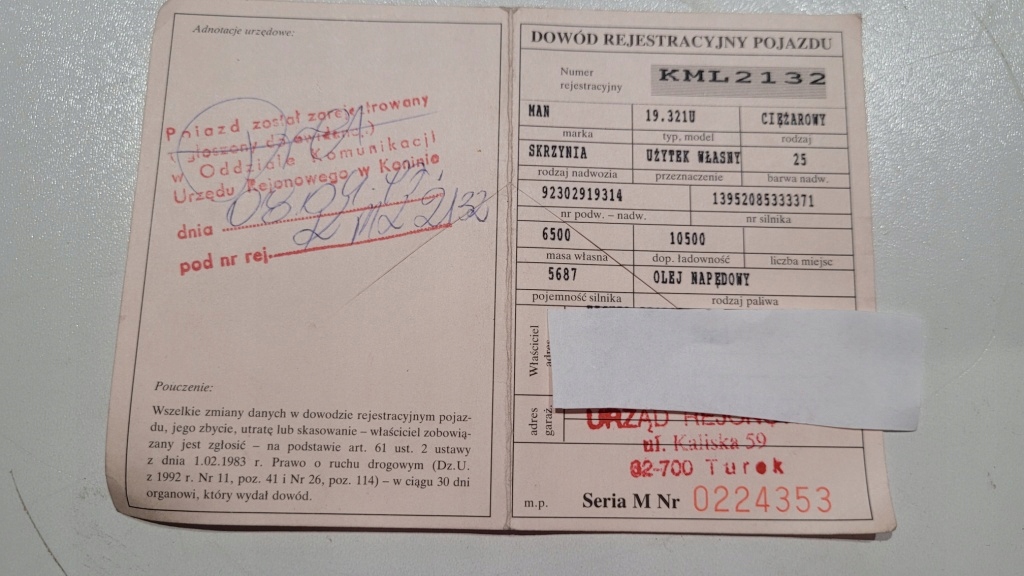 Adnotacje urzędowe:
Pojazd został zarejestrowany
w Oddziale Komunikacji
Urzędu Rejonowego w Koninie
dnia 08.04.
pod nr rej. 2132
Pouczenie:
Wszelkie zmiany danych w dowodzie rejestracyjnym pojaz-
du, jego zbycie, utratę lub skasowanie – właściciel zobowią-
zany jest zgłosić – na podstawie art. 61 ust. 2 ustawy
z dnia 1.02.1983 r. Prawo o ruchu drogowym (Dz.U.
z 1992 r. Nr 11, poz. 41 i Nr 26, poz. 114) – w ciągu 30 dni
organowi, który wydał dowód.
DOWÓD REJESTRACYJNY POJAZDU
Numer
rejestracyjny
KML2132
MAN 19.321U CIĘŻAROWY
marka typ, model rodzaj
SKRZYNIA UŻYTEK WŁASNY 25
rodzaj nadwozia przeznaczenie barwa nadw.
92302919314 13952085333371
nr podw. – nadw. nr silnika
6500 10500
masa własna dop. ładowność liczba miejsc
5687 OLEJ NAPĘDOWY
pojemność silnika rodzaj paliwa
Właściciel
adres
garaż.
URZĄD
ul. Kaliska 59
62-700 Turek
m.p. Seria M Nr 0224353